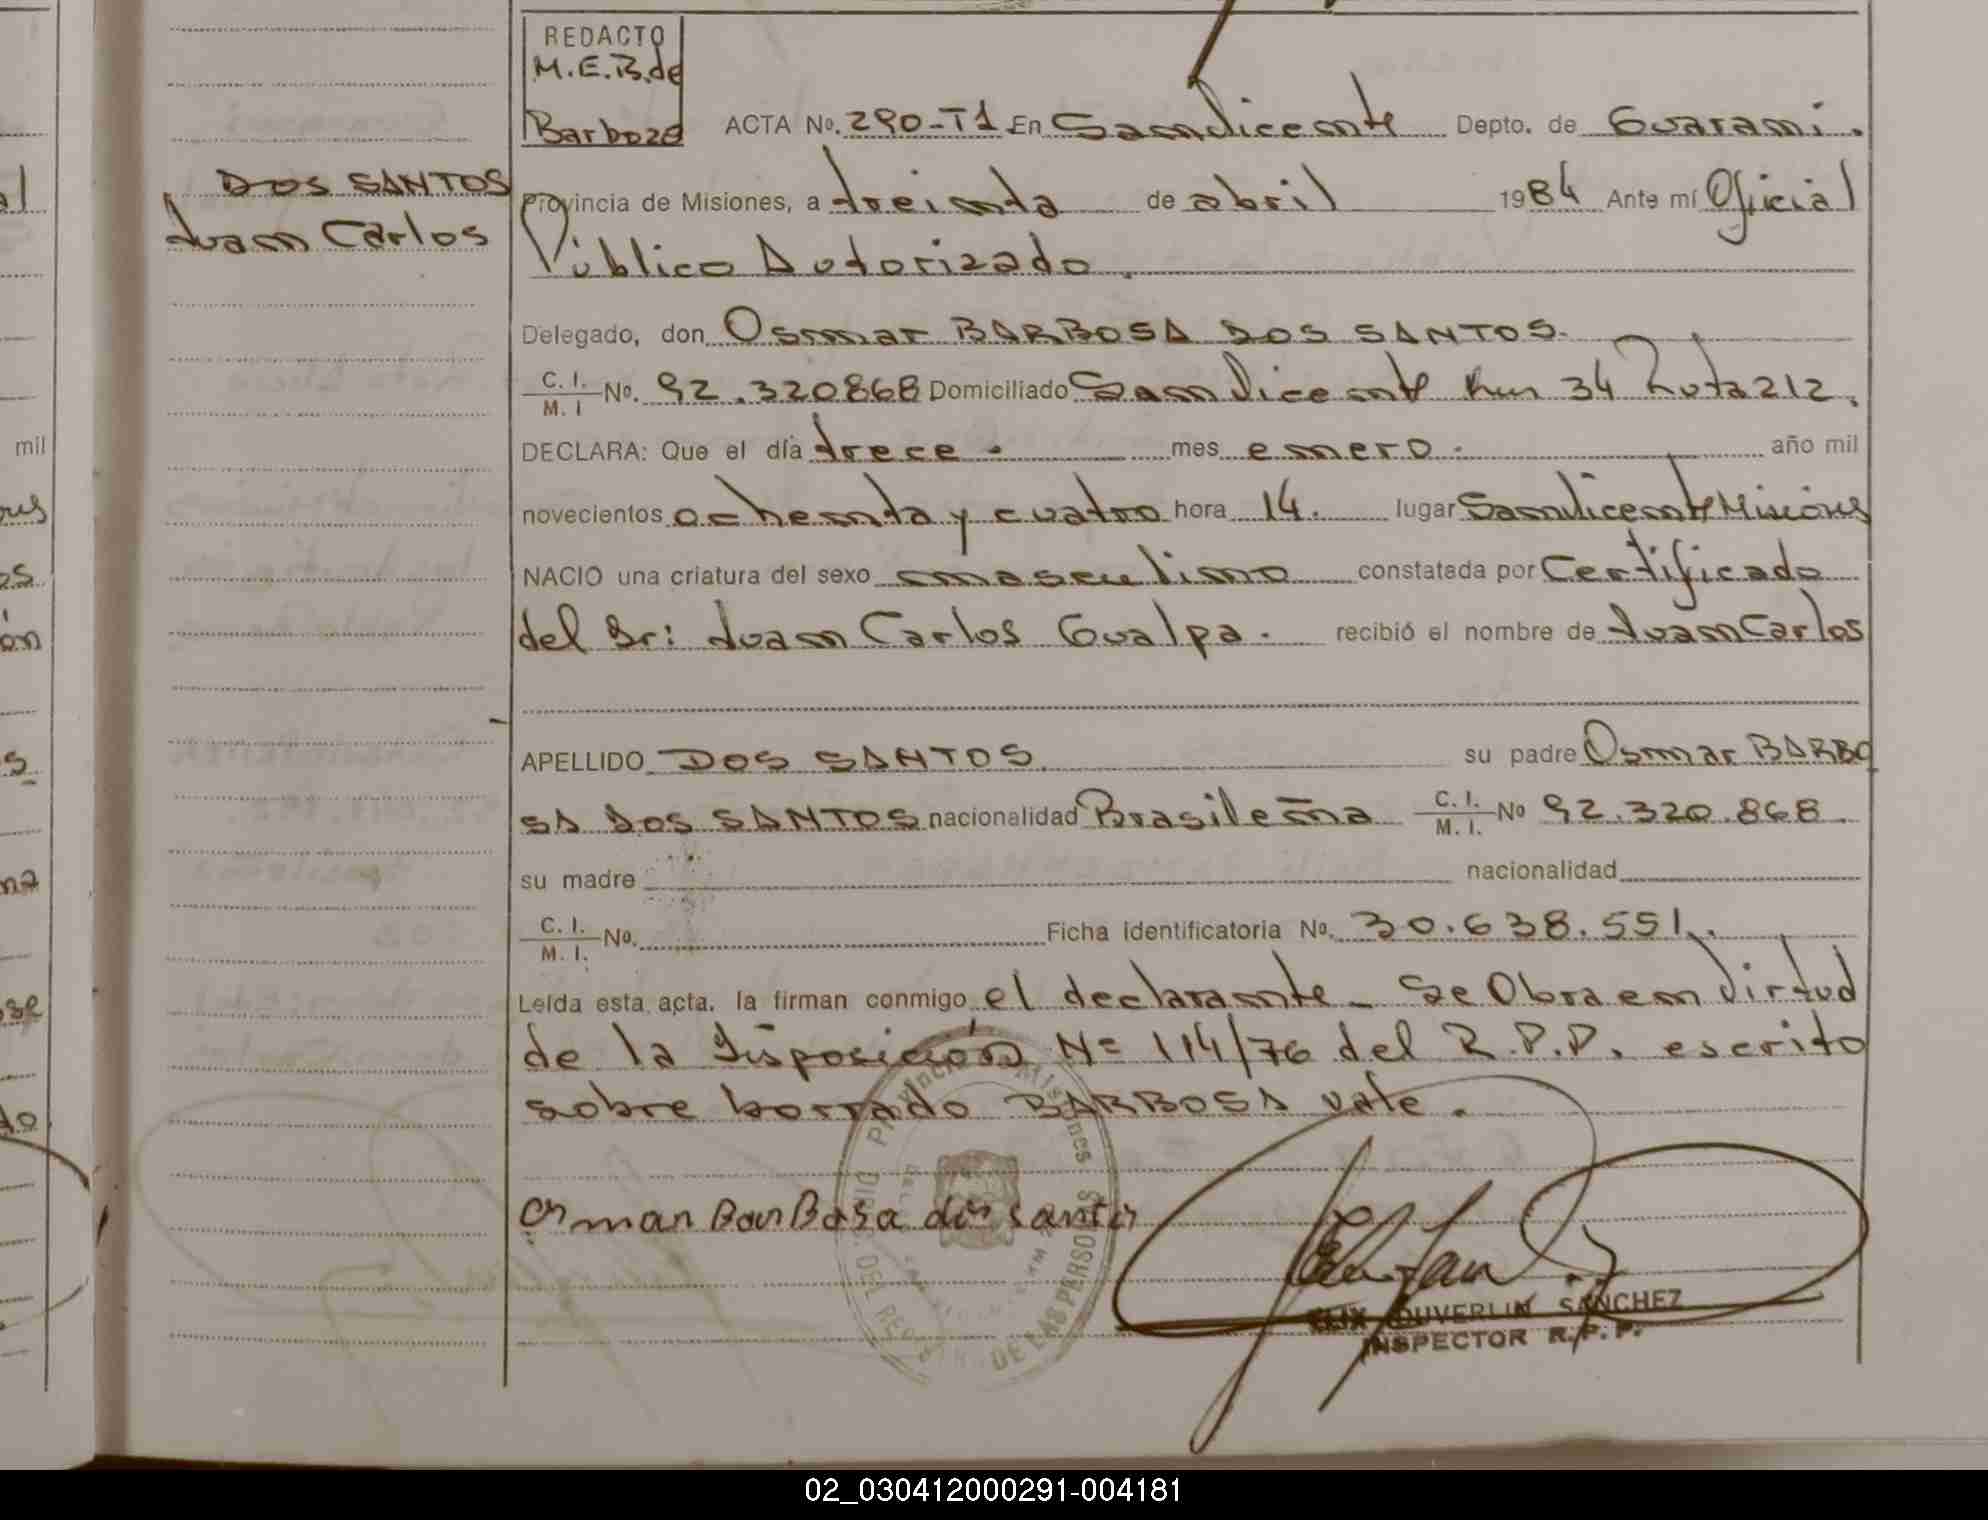 REDACTO
M.E.B.de
Barboza
ACTA No. 290-T1 En San Vicente Depto. de Guaraní.
DOS SANTOS
Juan Carlos
Provincia de Misiones, a treinta de abril 1984 Ante mí Oficial
Público Autorizado.
Delegado, don Osmar BARBOSA DOS SANTOS.
C. I. M. I No. 92.320868 Domiciliado San Vicente km 34 Ruta 212.
DECLARA: Que el día trece. mes enero. año mil
novecientos ochenta y cuatro hora 14. lugar San Vicente Misiones
NACIO una criatura del sexo masculino constatada por Certificado
del Sr: Juan Carlos Gualpa. recibió el nombre de Juan Carlos
APELLIDO DOS SANTOS su padre Osmar BARBO
SA DOS SANTOS nacionalidad Brasileña C. I. M. I. No 92.320.868.
su madre nacionalidad
C. I. M. I. No. Ficha identificatoria No. 30.638.551.
Leída esta acta, la firman conmigo el declarante_ Se Obra en Virtud
de la Disposición Nº 114/76 del R.P.P. escrito
sobre borrado BARBOSA vale.
Osmar BarBosa dos santos
Provincia Misiones
DIRC. DEL REG
DE LAS PERSONAS
FELIX DUVERLIN SANCHEZ
INSPECTOR R.P.P.
mil
02_030412000291-004181